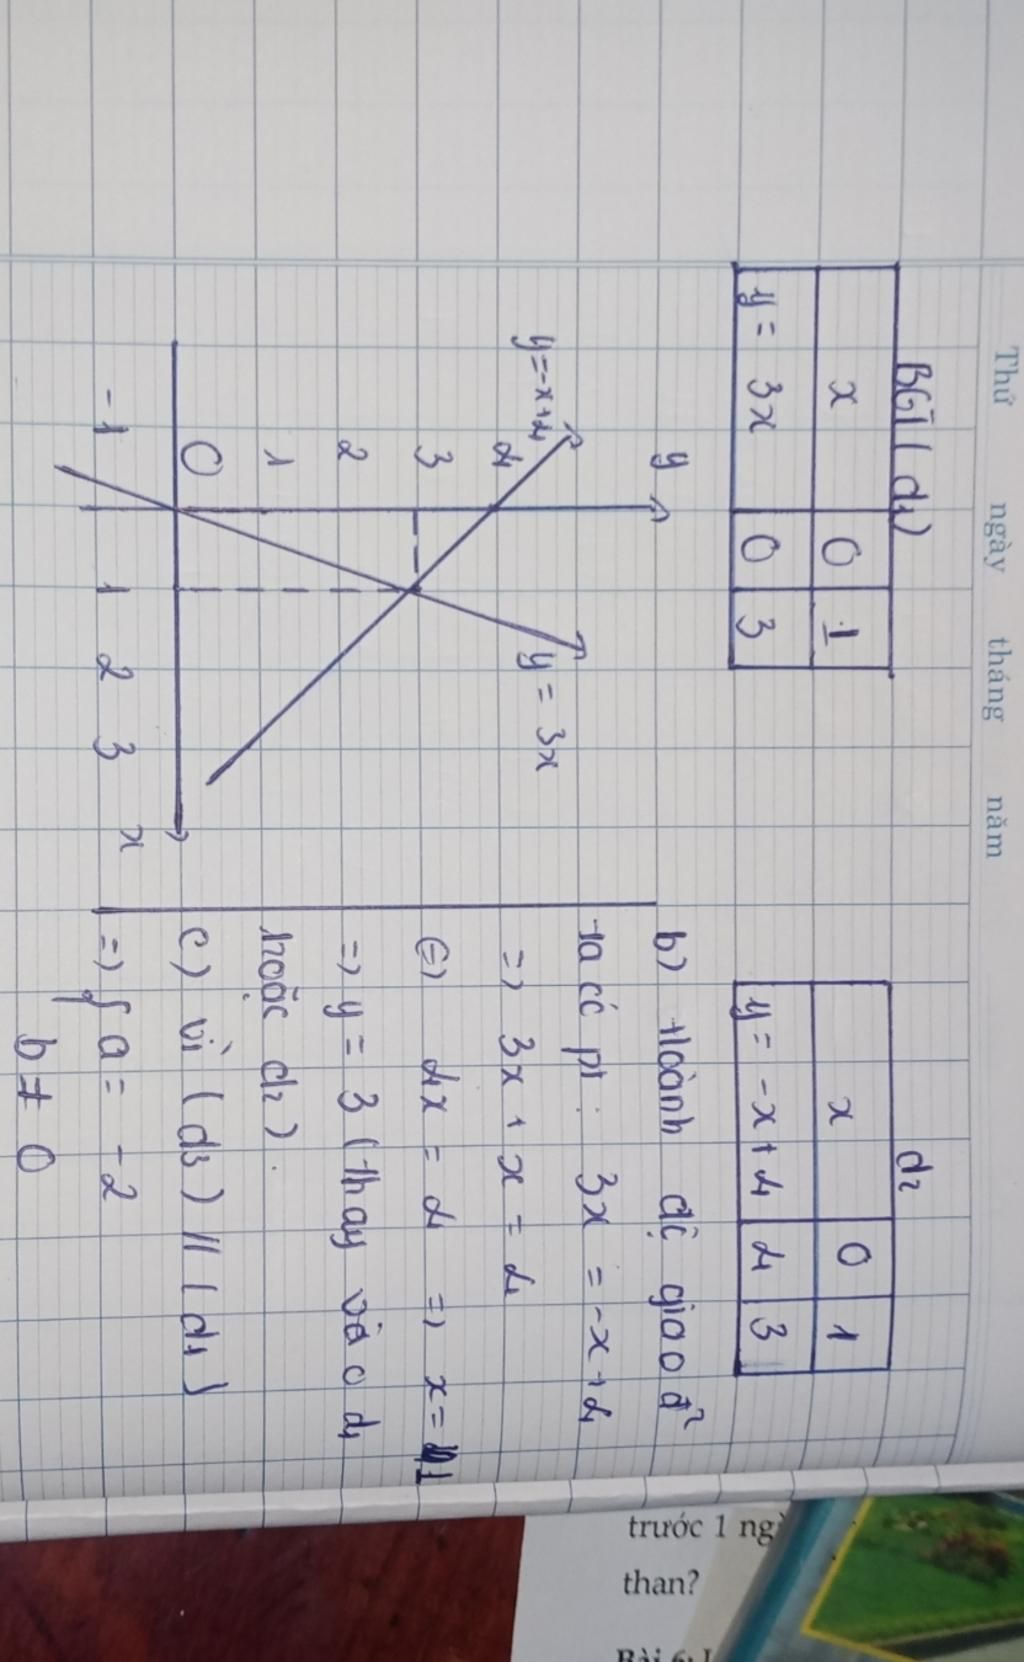 Thứ ngày tháng năm
BGT (d1)
x 0 1
y = 3x 0 3
d2
x 0 1
y = -x + 4 4 3
y
y=-x+4
4
3
2
1
0
y = 3x
-1 1 2 3 x
b) Hoành độ giao đ²
ta có pt : 3x = -x + 4
=> 3x + x = 4
<=> 4x = 4 => x = 1
=> y = 3 (thay vào d1
hoặc d2).
c) vì (d3) // (d1)
=> { a = -2
b ≠ 0
trước 1 ng
than?